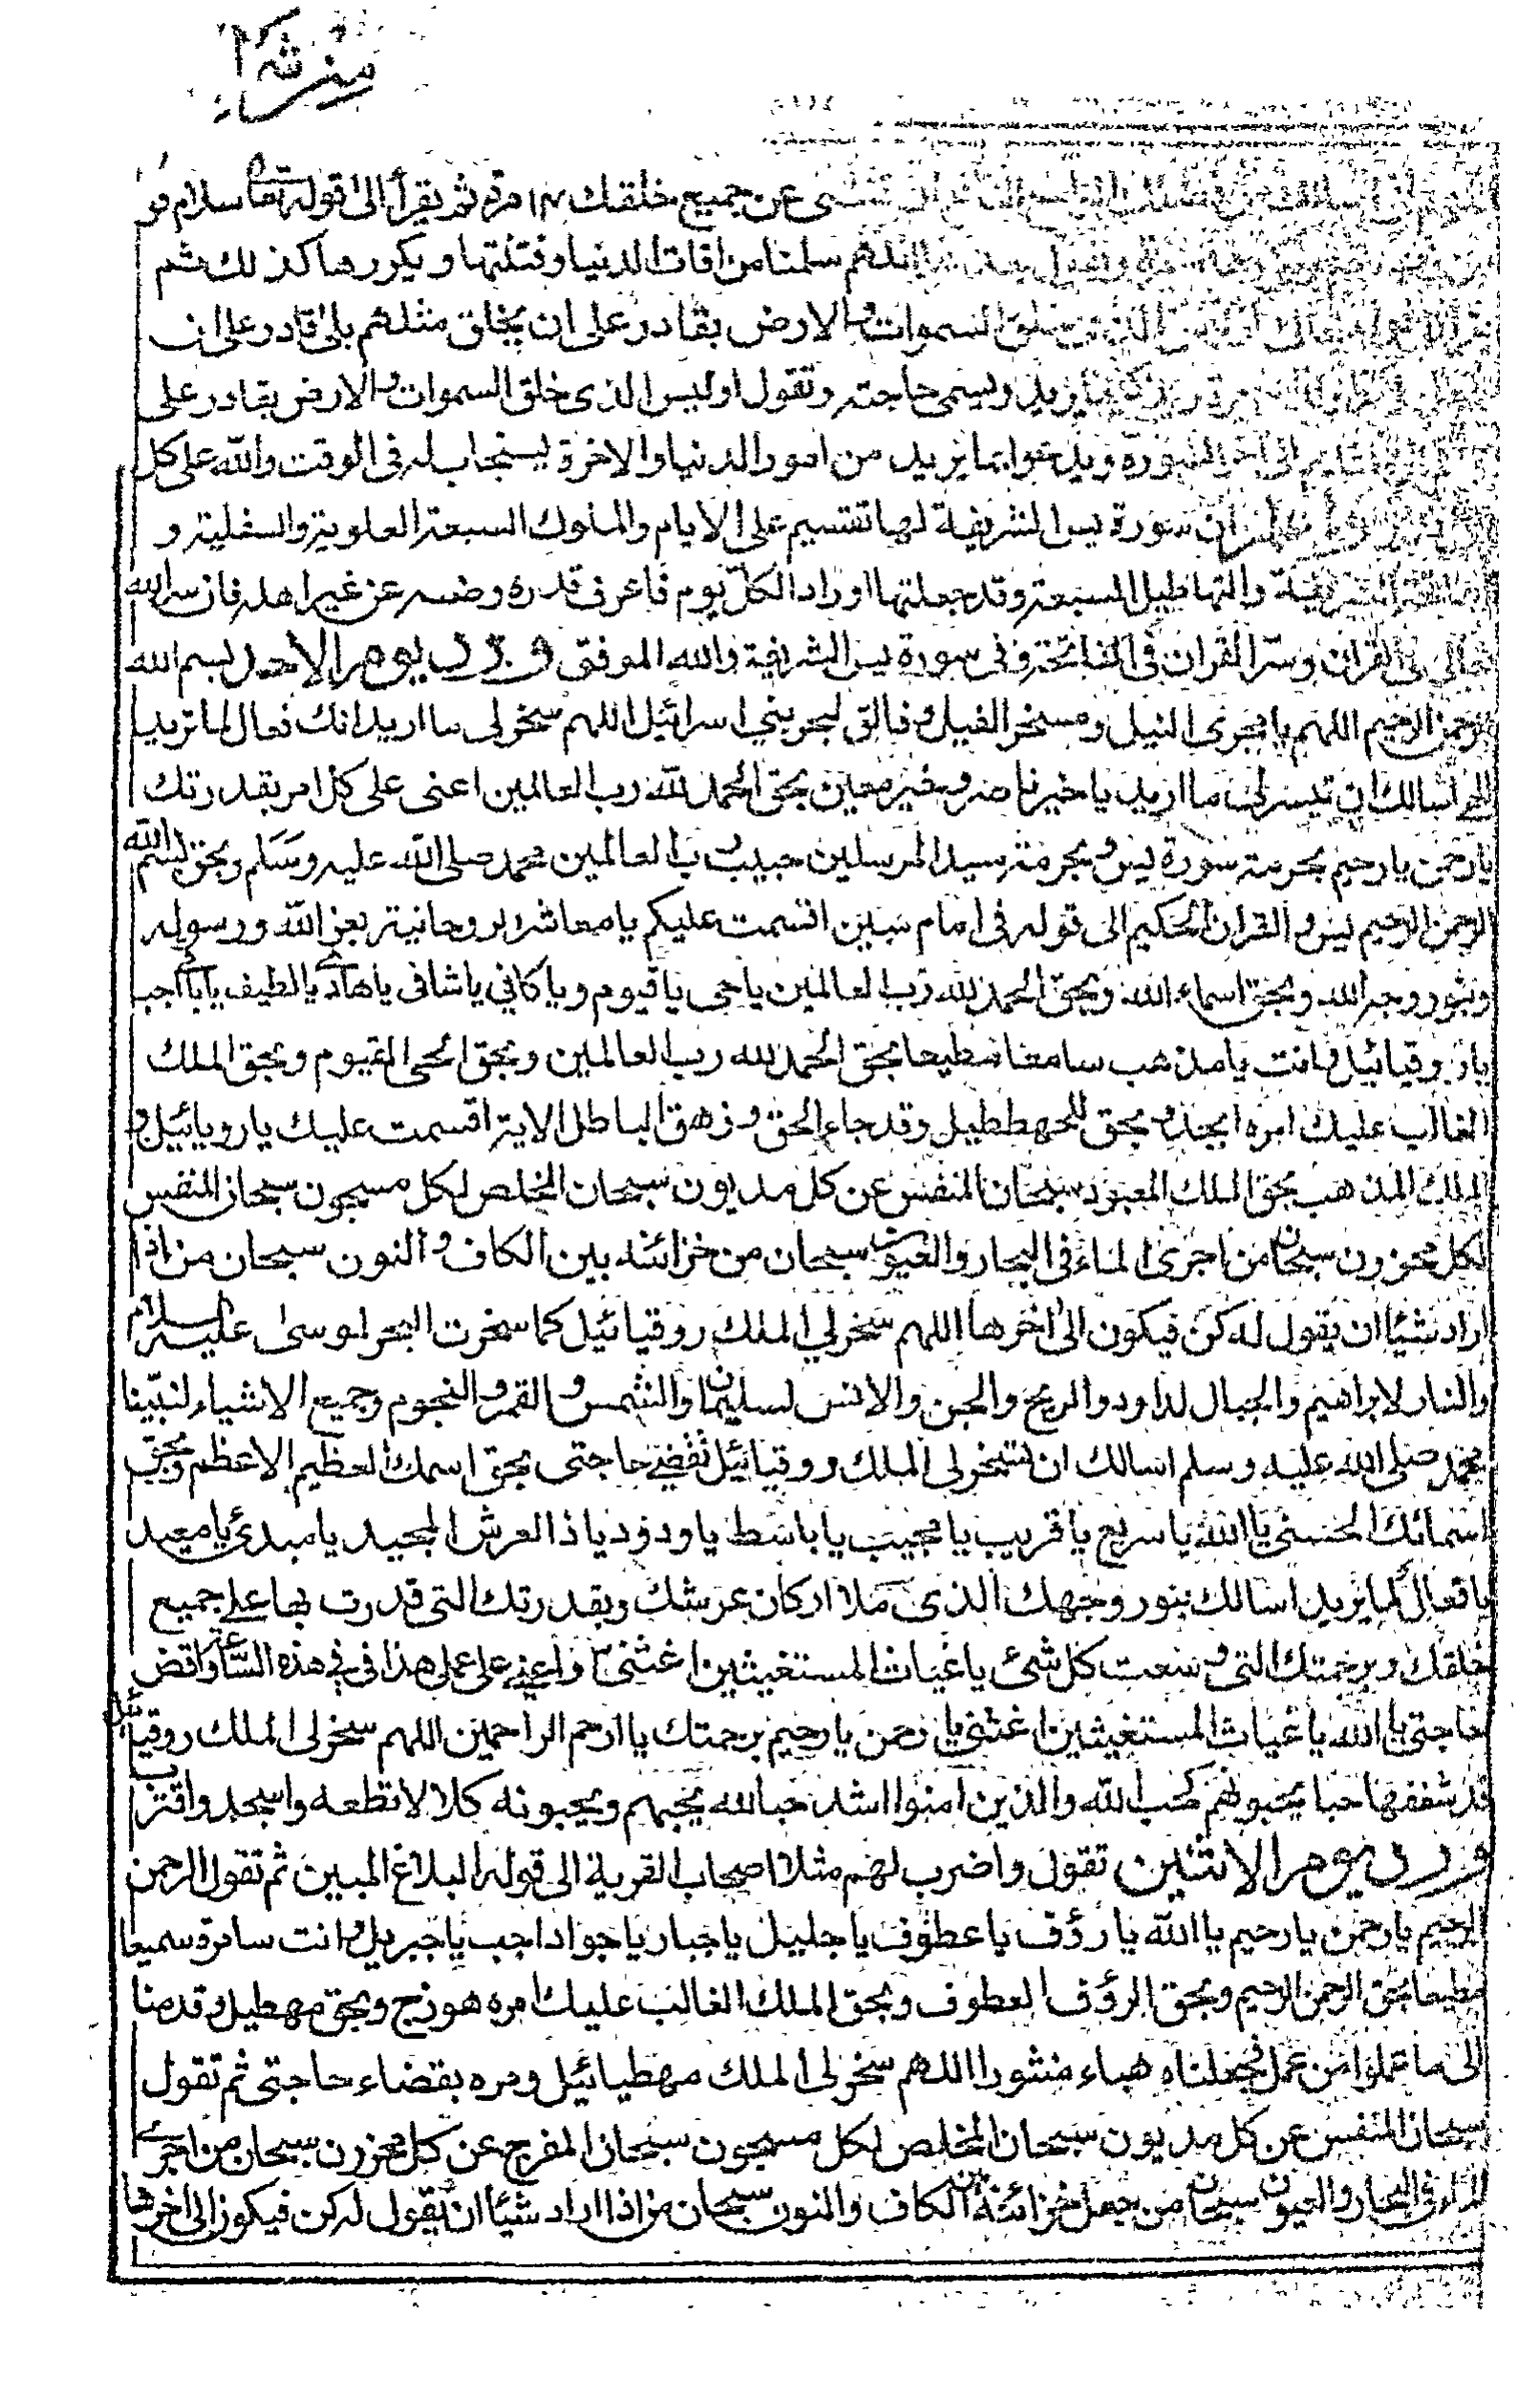 عن جميع خلقك ١٤ مرة ثم يقرأ الى قوله تعا سلام قو
اللهم سلمنا من افات الدنيا وفتنتها ويكررها كذلك ثم
السموات والارض بقادر على ان يخلق مثلهم بلى قادر على ان
يريد ويسمى حاجته وتقول اوليس الذى خلق السموات والارض بقادر على
الى اخر السورة ويدعوا بما يريد من امور الدنيا والاخرة ليستجاب له فى الوقت والله على كل
ان سورة يس الشريفة لها تقسيم على الايام والملوك السبعة العلوية والسفلية و
الشريفة والتهاطيل السبعة وقد جعلتها اورادا لكل يوم فاعرف قدره وضنه عن غير اهله فان سر الله
تعالى فى القران وسر القران فى الفاتحة وفى سورة يس الشريفة والله الموفق ورد يوم الاحد بسم الله
الرحمن الرحيم اللهم يا مجرى النيل ومسخر الفيل وفالق البحر لبني اسرائيل اللهم سخر لى ما اريد انك فعال لما تريد
الهى اسالك ان تيسر لى ما اريد يا خير ناصر وخير معين بحق الحمد لله رب العالمين اعنى على كل امر بقدرتك
يا رحمن يا رحيم بحرمة سورة يس وبحرمة سيد المرسلين حبيب رب العالمين محمد صلى الله عليه وسلم وبحق بسم الله
الرحمن الرحيم يس والقران الحكيم الى قوله فى امام مبين اقسمت عليكم يا معاشر الروحانية بعز الله ورسوله
وبنور وجه الله وبحق اسماء الله وبحق الحمد لله رب العالمين يا حى يا قيوم ويا كافي يا شافى يا هادى يا لطيف اجب
يا روقيائيل وانت يا مذهب سامعا مطيعا بحق الحمد لله رب العالمين وبحق الحى القيوم وبحق الملك
الغالب عليك امره ابجد وبحق للحهططيل وقد جاء الحق وزهق الباطل الاية اقسمت عليك يا روبائيل و
الملك المذهب بحق الملك المعبود سبحان المنفس عن كل مديون سبحان المخلص لكل مسجون سبحان المنفس
لكل محزون سبحان من اجرى الماء فى البحار والعيون سبحان من خزائنه بين الكاف والنون سبحان من اذا
اراد شيئا ان يقول له كن فيكون الى اخرها اللهم سخر لي الملك روقيائيل كما سخرت البحر لموسى عليه السلام
والنار لابراهيم والجبال لداود والريح والجن والانس لسليمان والشمس والقمر والنجوم وجميع الاشياء لنبينا
محمد صلى الله عليه وسلم اسالك ان تسخر لى الملك روقيائيل تقضى حاجتى بحق اسمك العظيم الاعظم وبحق
اسمائك الحسنى يا الله يا سريع يا قريب يا مجيب يا باسط يا ودود يا ذا العرش المجيد يا مبدئ يا معيد
يا فعال لما يريد اسالك بنور وجهك الذى ملا اركان عرشك وبقدرتك التى قدرت بها على جميع
خلقك وبرحمتك التى وسعت كل شئ يا غياث المستغيثين اغثنى واعنى على عملى هذا فى فى هذه الساعة واقض
حاجتى يا الله يا غياث المستغيثين اغثنى يا رحمن يا رحيم برحمتك يا ارحم الراحمين اللهم سخر لى الملك روقيائيل
قد شغفها حبا يحبونهم كحب الله والذين امنوا اشد حبا لله يحبهم ويحبونه كلا لا تطعه واسجد واقترب
ورد يوم الاثنين تقول واضرب لهم مثلا اصحاب القرية الى قوله البلاغ المبين ثم تقول الرحمن
الرحيم يا رحمن يا رحيم يا الله يا رؤف يا عطوف يا جليل يا جبار يا جواد اجب يا جبريل وانت سامرة سميعا
مطيعا بحق الرحمن الرحيم وبحق الرؤف العطوف وبحق الملك الغالب عليك امره هوزح وبحق مهطيل وقدمنا
الى ما عملوا من عمل فجعلناه هباء منثورا اللهم سخر لى الملك مهطيائيل ومره بقضاء حاجتى ثم تقول
سبحان المنفس عن كل مديون سبحان المخلص لكل مسجون سبحان المفرج عن كل محزون سبحان من اجرى
الماء فى البحار والعيون سبحان من جعل خزائنه بين الكاف والنون سبحان من اذا اراد شيئا ان يقول له كن فيكون الى اخرها